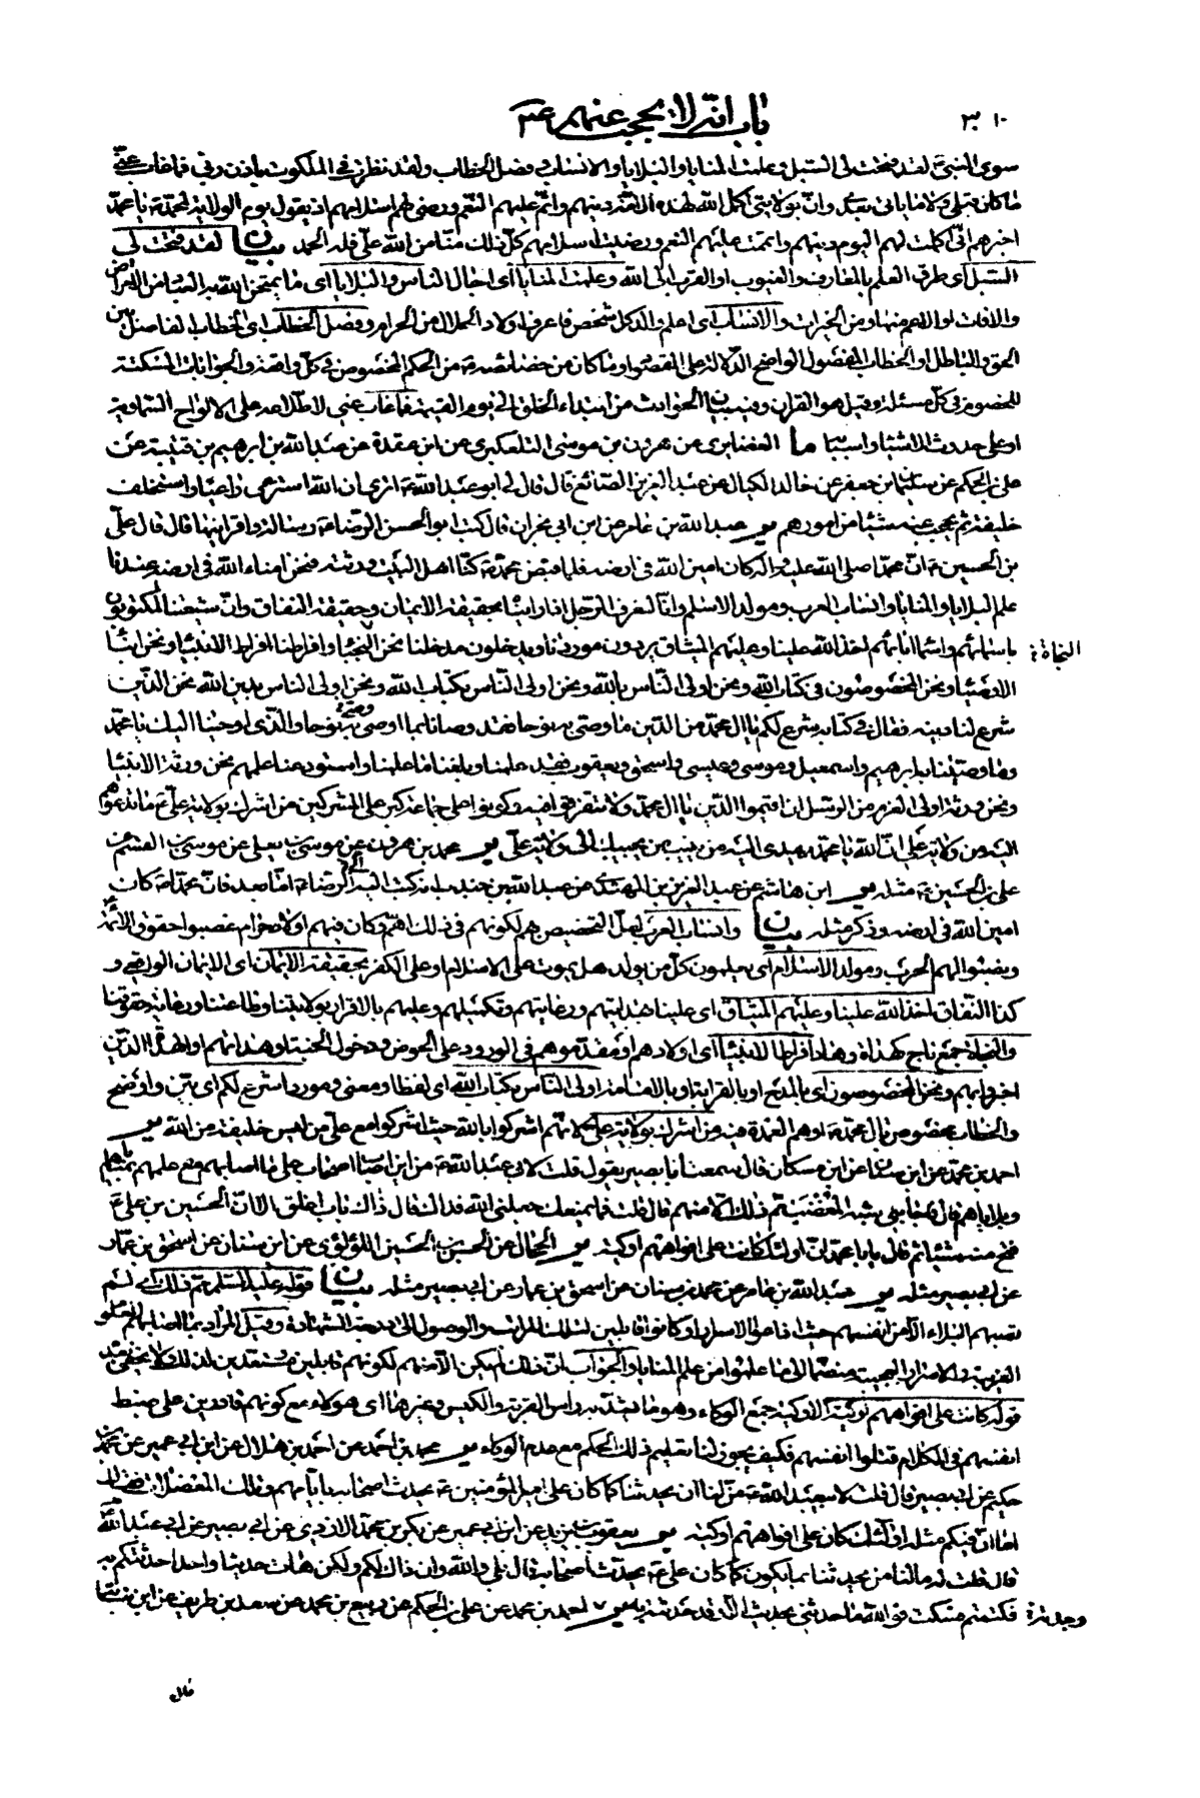 باب انه لا يحجب عنهم ع
سوى النبي لقد فتحت لي السبل وعلمت المنايا والبلايا والانساب وفصل الخطاب ولقد نظرت في الملكوت باذن ربي فما غاب عني
ما كان قبلي ولا ما ياتي بعدي وان بولايتي اكمل الله لهذه الامة دينهم واتم عليهم النعم ورضي لهم اسلامهم اذ يقول يوم الولاية لمحمد يا محمد
اخبرهم اني اكملت لهم اليوم دينهم واتممت عليهم النعم ورضيت اسلامهم كل ذلك منا من الله علي فله الحمد بيان لقد فتحت لي
السبل اى طرق العلم بالمعارف والغيوب او القرب الى الله وعلمت المنايا اى اجال الناس والبلايا اى ما يمتحن الله به العباد من الامراض
والافات او الاعم منها ومن الخيرات والانساب اى اعلم والد كل شخص فاعرف اولاد الحلال من الحرام وفصل الخطاب اى الخطاب الفاصل بين
الحق والباطل او الخطاب المفصول الواضح الدلالة على المقصود او ما كان من خصائصه من الحكم المخصوص في كل واقعة والجوابات المسكتة
للخصوم في كل مسئلة وقيل هو القران وفيه بيان الحوادث من ابتداء الخلق الى يوم القيمة فما غاب عني لاطلاعه على الالواح السماوية
او على حدوث الاشياء واسبابها ما الغضايرى عن هرون بن موسى التلعكبرى عن ابن عقدة عن عبد الله بن ابرهيم بن قتيبة عن
على بن الحكم عن سليمان بن جعفر عن خالد الكيال عن عبد العزيز الصائغ قال قال لى ابو عبد الله ع اترى ان الله استرعى راعيا واستخلف
خليفة ثم يحجب عنه شيئا من امورهم ير عبد الله بن عامر عن ابن ابي نجران قال كتب ابو الحسن الرضا ع رسالة واقرانيها قال قال على
بن الحسين ع ان محمدا صلى الله عليه واله كان امين الله في ارضه فلما قبض محمد ص كنا اهل البيت ورثته فنحن امناء الله في ارضه عندنا
علم البلايا والمنايا وانساب العرب ومولد الاسلام وانا لنعرف الرجل اذا رايناه بحقيقة الايمان وحقيقة النفاق وان شيعتنا لمكتوبون
باسمائهم واسماء ابائهم اخذ الله علينا وعليهم الميثاق يردون موردنا ويدخلون مدخلنا نحن النجباء وافراطنا افراط الانبياء ونحن ابناء
النجاة
الاوصياء ونحن المخصوصون في كتاب الله ونحن اولى الناس بالله ونحن اولى الناس بكتاب الله ونحن اولى الناس بدين الله نحن الذين
شرع لنا دينه فقال في كتابه شرع لكم يا ال محمد من الدين ما وصى به نوحا فقد وصانا بما اوصى به نوحا والذى اوحينا اليك يا محمد
وما وصينا به ابراهيم واسمعيل وموسى وعيسى واسحق ويعقوب فقد علمنا وبلغنا ما علمنا واستودعنا علمهم نحن ورثة الانبياء
ونحن ورثة اولى العزم من الرسل ان اقيموا الدين يا ال محمد ولا تتفرقوا فيه وكونوا على جماعة كبر على المشركين من اشرك بولاية على ع ما تدعوهم
اليه من ولاية على ان الله يا محمد يهدى اليه من ينيب من يجيبك الى ولاية على ير محمد بن هرون عن موسى بن يعلى عن موسى بن القسم عن
على بن الحسين ع مثله ير ابن هاشم عن عبد العزيز بن المهتدى عن عبد الله بن جندب انه كتب اليه الرضا ع اما بعد فان محمدا ص كان
امين الله في ارضه وذكر مثله بيان وانساب العرب لعل التخصيص بهم لكونهم في ذلك اهم وكان فيهم اولاد حرام غصبوا حقوق الائمة
ونصبوا لهم الحرب ومولد الاسلام اى يعلمون كل من يولد هل يموت على الاسلام او على الكفر بحقيقة الايمان اى الايمان الواقعى و
كذا النفاق اخذ الله علينا وعليهم الميثاق اى علينا هدايتهم ورعايتهم وتكميلهم وعليهم بالاقرار بولايتنا وطاعتنا ورعاية حقوقنا
والنجاة جمع ناج كهداة وهاد افراط الانبياء اى اولادهم او مقدموهم في الورود على الحوض ودخول الجنة او هداتهم او الهداة الذين
اخبروا بهم ونحن المخصوصون اى بالمدح او بالقرابة او بالامامة اولى الناس بكتاب الله اى لفظا ومعنى ومورد شرع لكم اى بين واوضح
والخطاب مخصوص بال محمد ص او هم العمدة فيه من اشرك بولاية على لانهم اشركوا بالله حيث اشركوا مع على من ليس خليفة من الله ير
احمد بن محمد عن ابن سنان عن ابن مسكان قال سمعت ابا بصير يقول قلت لابي عبد الله ع من اين اصاب اصحاب على ما اصابهم مع علمهم بمناياهم
وبلاياهم قال فاجابني شبه المغضب مم ذلك الا منهم قال قلت فما يمنعك جعلني الله فداك قال ذاك باب اغلق الا ان الحسين بن على ع
فتح منه شيئا ثم قال يا با محمد ان اولئك كانت على افواههم اوكية ير الجمال عن الحسن بن الحسين اللؤلؤى عن ابن سنان عن اسحق بن عمار
عن ابي بصير مثله ير عبد الله بن عامر عن محمد بن سنان عن اسحق بن عمار عن ابي بصير مثله بيان قوله عليه السلام مم ذلك اى لم
يصبهم البلاء الا من انفسهم حيث اذاعوا الاسرار او كانوا قابلين لتلك المراتب والوصول الى درجة الشهادة وقيل المراد بما اصابهم العلوم
الغريبة والاسرار العجيبة منضما الى ما علموا من علم المنايا والجواب ان ذلك لم يكن الا منهم لكونهم قابلين مستعدين لذلك ولا يخفى بعده
قوله كانت على افواههم اوكية الاوكية جمع الوكاء وهو ما يشد به راس القربة والكيس وغيرهما اى هؤلاء مع كونهم قادرين على ضبط
انفسهم في الكلام قتلوا انفسهم فكيف يجوز لنا تعليم ذلك لكم مع عدم الوكاء ير محمد بن احمد عن احمد بن هلال عن ابن ابي عمير عن محمد بن
حكيم عن ابي بصير قال قلت لابي عبد الله ع من لنا ان يحدثنا كما كان على امير المؤمنين ع يحدث اصحابه بايامهم وتلك المعضلات فقال
اما ان فيكم مثله اولئك كان على افواههم اوكية ير يعقوب بن يزيد عن ابن ابي عمير عن بكر بن محمد الازدى عن ابي بصير عن ابي عبد الله ع
قال قلت له ما لنا من يحدثنا بما يكون كما كان على ع يحدث اصحابه قال بلى والله وان ذاك لكم ولكن هات حديثا واحدا حدثتكم به
فكتمتم فسكت فوالله ما حدثني بحديث الا وقد حدثت به ير احمد بن محمد عن على بن الحكم عن ربيع بن محمد عن سعد بن طريف عن ابن نباتة
وجدته
قال